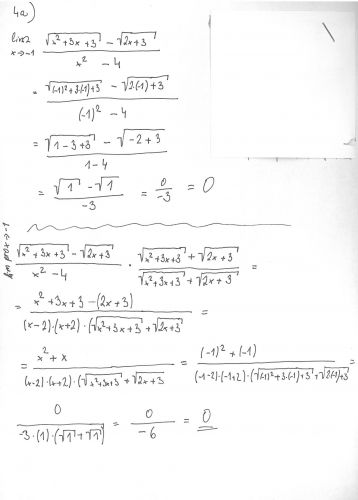 4a)
lim x→-1 (√(x²+3x+3) - √(2x+3)) / (x² - 4)
= (√((-1)²+3·(-1)+3) - √(2·(-1)+3)) / ((-1)² - 4)
= (√(1-3+3) - √(-2+3)) / (1-4)
= (√1 - √1) / -3 = 0/-3 = 0
lim pro x→-1
(√(x²+3x+3) - √(2x+3)) / (x² - 4) · (√(x²+3x+3) + √(2x+3)) / (√(x²+3x+3) + √(2x+3)) =
= (x²+3x+3-(2x+3)) / ((x-2)·(x+2)·(√(x²+3x+3) + √(2x+3)) =
= (x²+x) / ((x-2)·(x+2)·(√(x²+3x+3) + √(2x+3) = ((-1)²+(-1)) / ((-1-2)·(-1+2)·(√((-1)²+3·(-1)+3) + √(2·(-1)+3) =
0 / (-3·(1)·(√1+√1)) = 0/-6 = 0